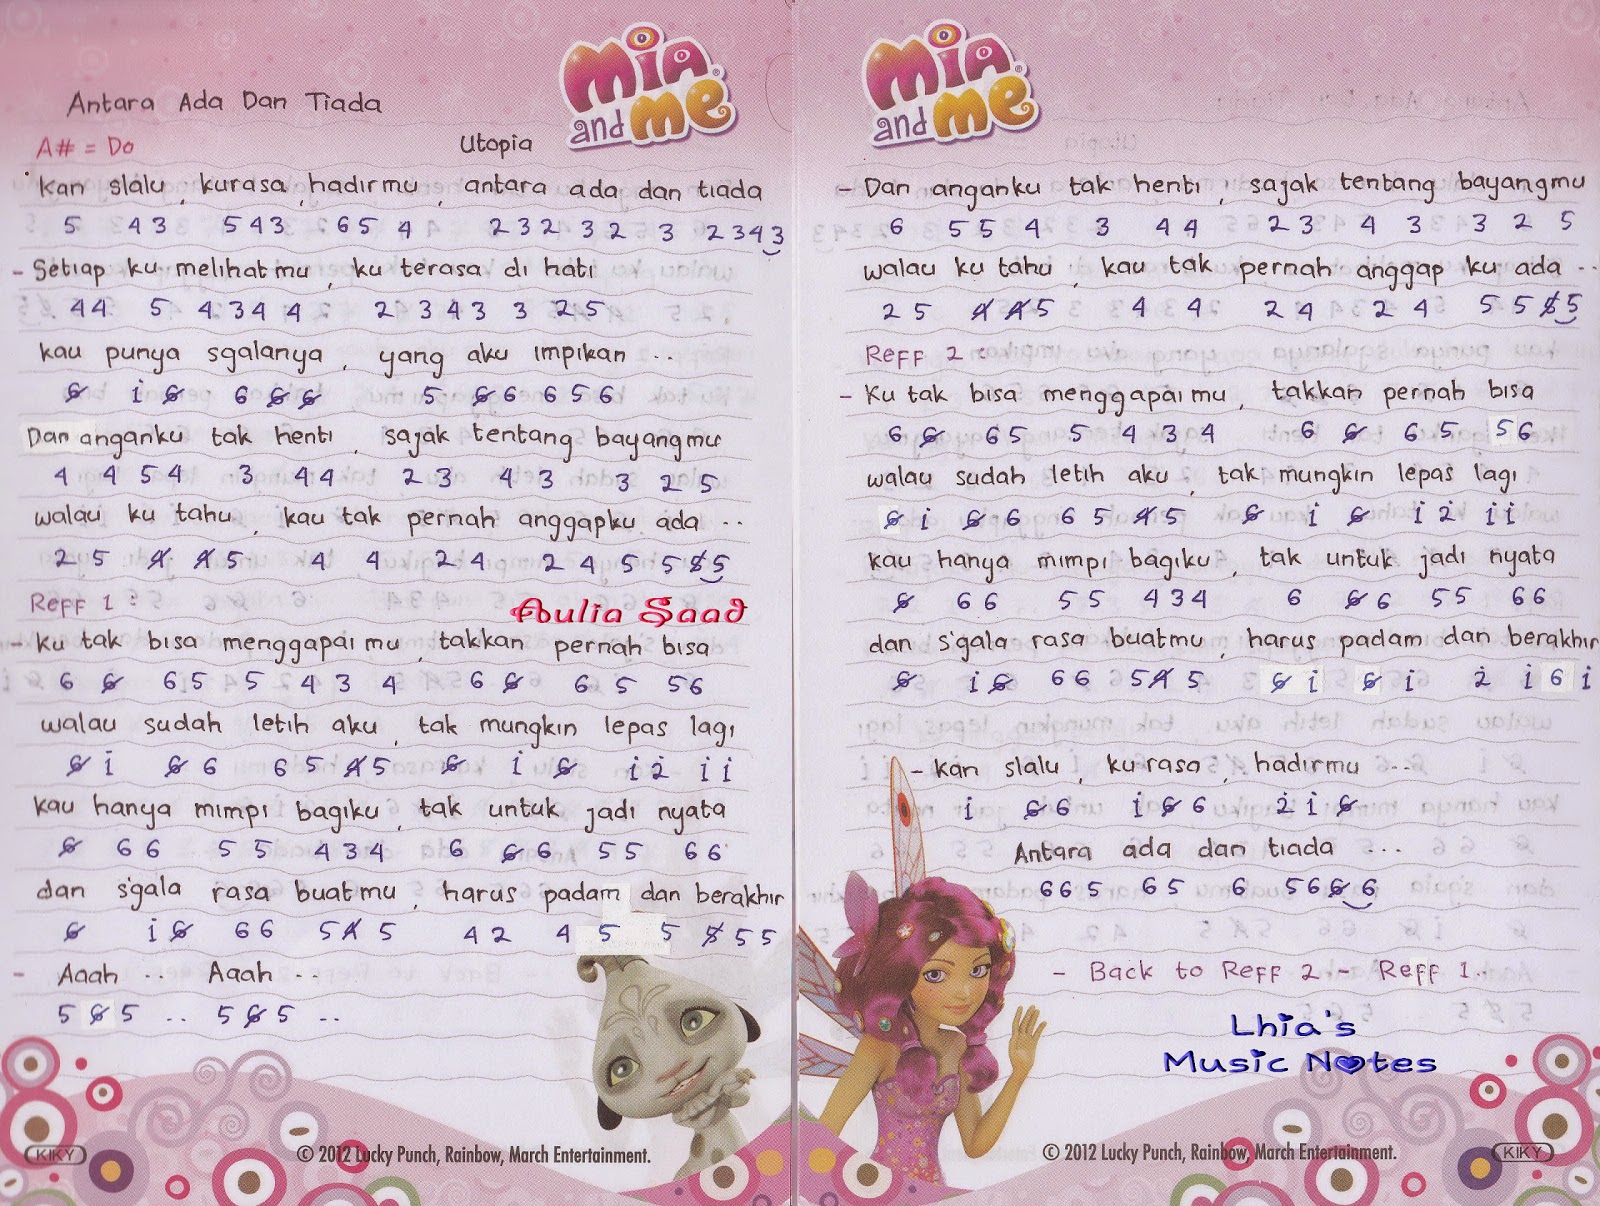 mia and me®
Antara Ada Dan Tiada
A# = Do
Utopia
Kan slalu, kurasa, hadirmu, antara ada dan tiada
5 43 543 65 4 232 32 3 2343
- Setiap ku melihatmu, ku terasa di hati
44 5 434 4 2 343 3 25
kau punya sgalanya, yang aku impikan ..
6̸ i 6̸ 6 6̸ 6̸ 5 6̸ 6 6 5 6
Dan anganku tak henti, sajak tentang bayangmu
4 4 5 4 3 44 23 43 3 2 5
walau ku tahu, kau tak pernah anggapku ada ..
2 5 4̸ 4̸ 5 4 4 2 4 2 4 5 5 5̸ 5
Reff 1 :
Aulia Saad
- Ku tak bisa menggapai mu, takkan pernah bisa
6 6̸ 65 5 4 3 4 6 6̸ 6 5 56
walau sudah letih aku, tak mungkin lepas lagi
6̸ i 6̸ 6 6 5 4̸ 5 6̸ i 6̸ i 2̇ i i
kau hanya mimpi bagiku, tak untuk jadi nyata
6̸ 66 55 434 6 6̸ 6 55 66
dan s'gala rasa buatmu, harus padam dan berakhir
6̸ i 6̸ 66 5 4̸ 5 42 4 5 5 5̸ 5 5
- Aaah .. Aaah ..
5 6̸ 5 .. 5 6̸ 5 ..
KIKY
© 2012 Lucky Punch, Rainbow, March Entertainment.
mia and me®
- Dan anganku tak henti, sajak tentang bayangmu
6 55 4 3 44 23 4 3 3 2 5
walau ku tahu, kau tak pernah anggap ku ada ..
2 5 4̸ 4̸ 5 4 4 2 4 2 4 5 5 5̸ 5
Reff 2 :
- Ku tak bisa menggapai mu, takkan pernah bisa
6 6̸ 65 5 4 3 4 6 6̸ 6 5 56
walau sudah letih aku, tak mungkin lepas lagi
6̸ i 6̸ 6 6 5 4̸ 5 6̸ i 6̸ i 2̇ i i
kau hanya mimpi bagiku, tak untuk jadi nyata
6̸ 66 55 434 6 6̸ 6 55 66
dan s'gala rasa buatmu, harus padam dan berakhir
6̸ i 6̸ 66 5 4̸ 5 6̸ i 6̸ i 2̇ i 6 i
- Kan slalu, kurasa, hadirmu ...
i 6̸ 6 i 6̸ 6 2̇ i 6̸
Antara ada dan tiada ...
665 65 6 56 6̸ 6
- Back to Reff 2 - Reff 1..
Lhia's
Music Notes
© 2012 Lucky Punch, Rainbow, March Entertainment.
KIKY